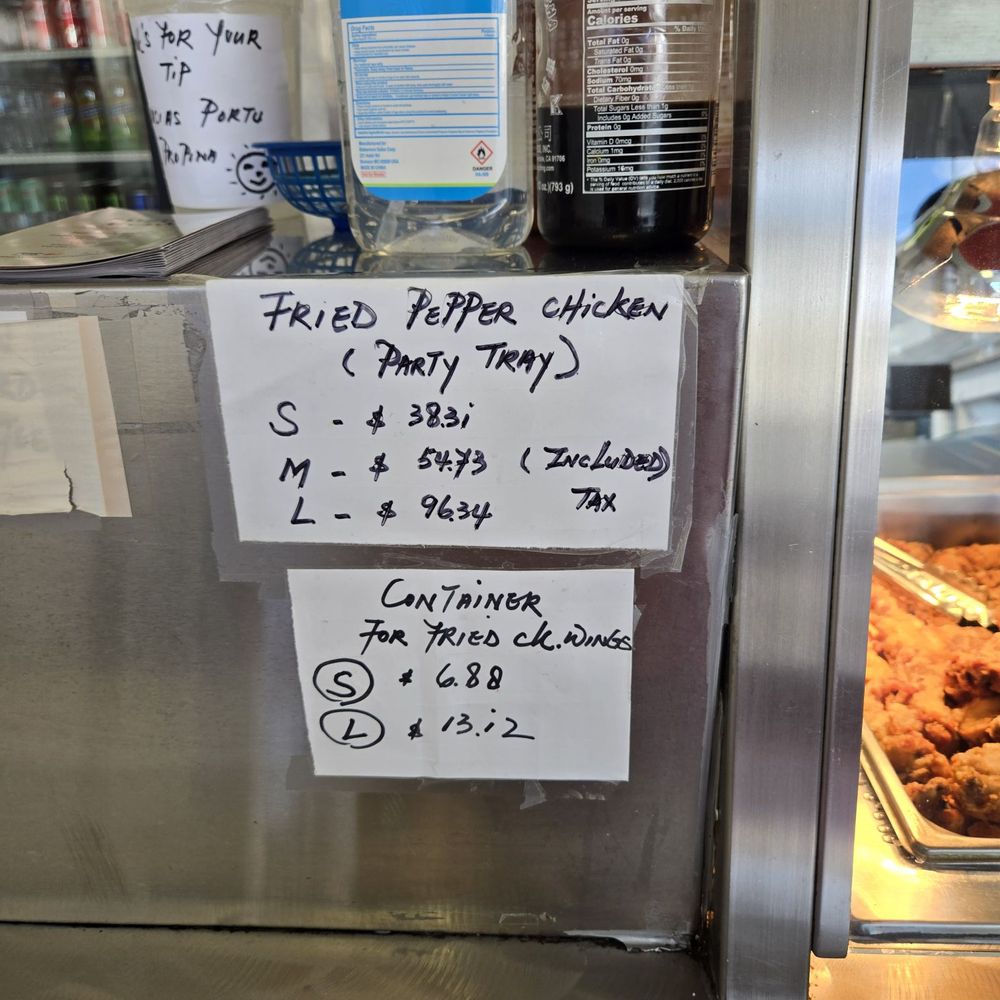 'S FOR YOUR
TIP
PORTU
PROPINA
Drug Facts
DANGER
Amount per serving
Calories
% Daily
Total Fat 0g
Saturated Fat 0g
Trans Fat 0g
Cholesterol 0mg
Sodium 70mg
Total Carbohydrate Less than 1g
Dietary Fiber 0g
Total Sugars Less than 1g
Includes 0g Added Sugars
Protein 0g
Vitamin D 0mcg
Calcium 1mg
Iron 0mg
Potassium 16mg
INC.
CA 91706
(793 g)
FRIED PEPPER CHICKEN
(PARTY TRAY)
S - $ 38.31
M - $ 54.73 (INCLUDED)
L - $ 96.34 TAX
CONTAINER
FOR FRIED CK. WINGS
S $ 6.88
L $ 13.12